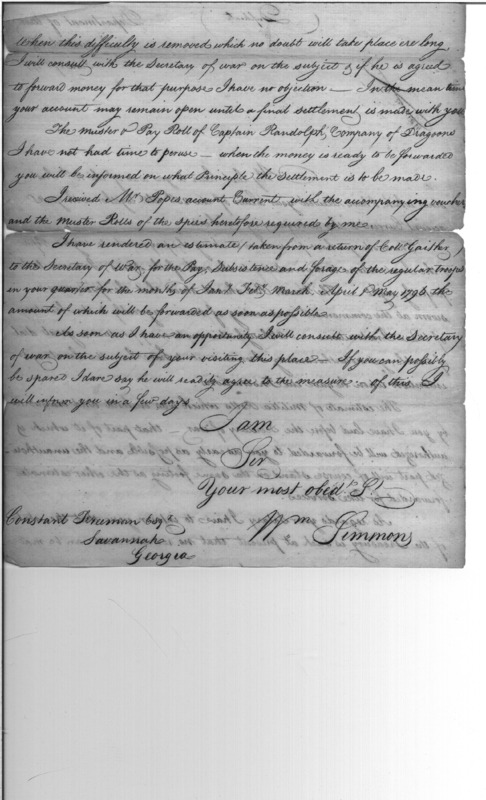 When this difficulty is removed which no doubt will take place ere long
I will consult with the Secretary of war on the subject & if he is agreed
to forward money for that purpose I have no objection — In the mean time
your account may remain open until a final settlement is made with you
The muster & Pay Roll of Captain Randolph, Company of Dragoons
I have not had time to peruse — when the money is ready to be forwarded
you will be informed on what Principle the Settlement is to be made.
I received Mr. Popes account Current, with the accompanying voucher
and the Muster Rolls of the spies heretofore required by me.
I have rendered an estimate (taken from a return of Colo. Gaither)
to the Secretary of War, for the Pay, Subsistence and forage of the regular troops
in your quarter for the months of Jany. Feby. March, April & May 1794 the
amount of which will be forwarded as soon as possible
As soon as I have an opportunity I will consult with the Secretary
of war on the subject of your visiting this place — If you can possibly
be spared I dare say he will readily agree to the measure — of this I
will inform you in a few days
I am
Sir
Your most obedt. St.
Wm Simmons
Constant Freeman Esqr.
Savannah
Georgia